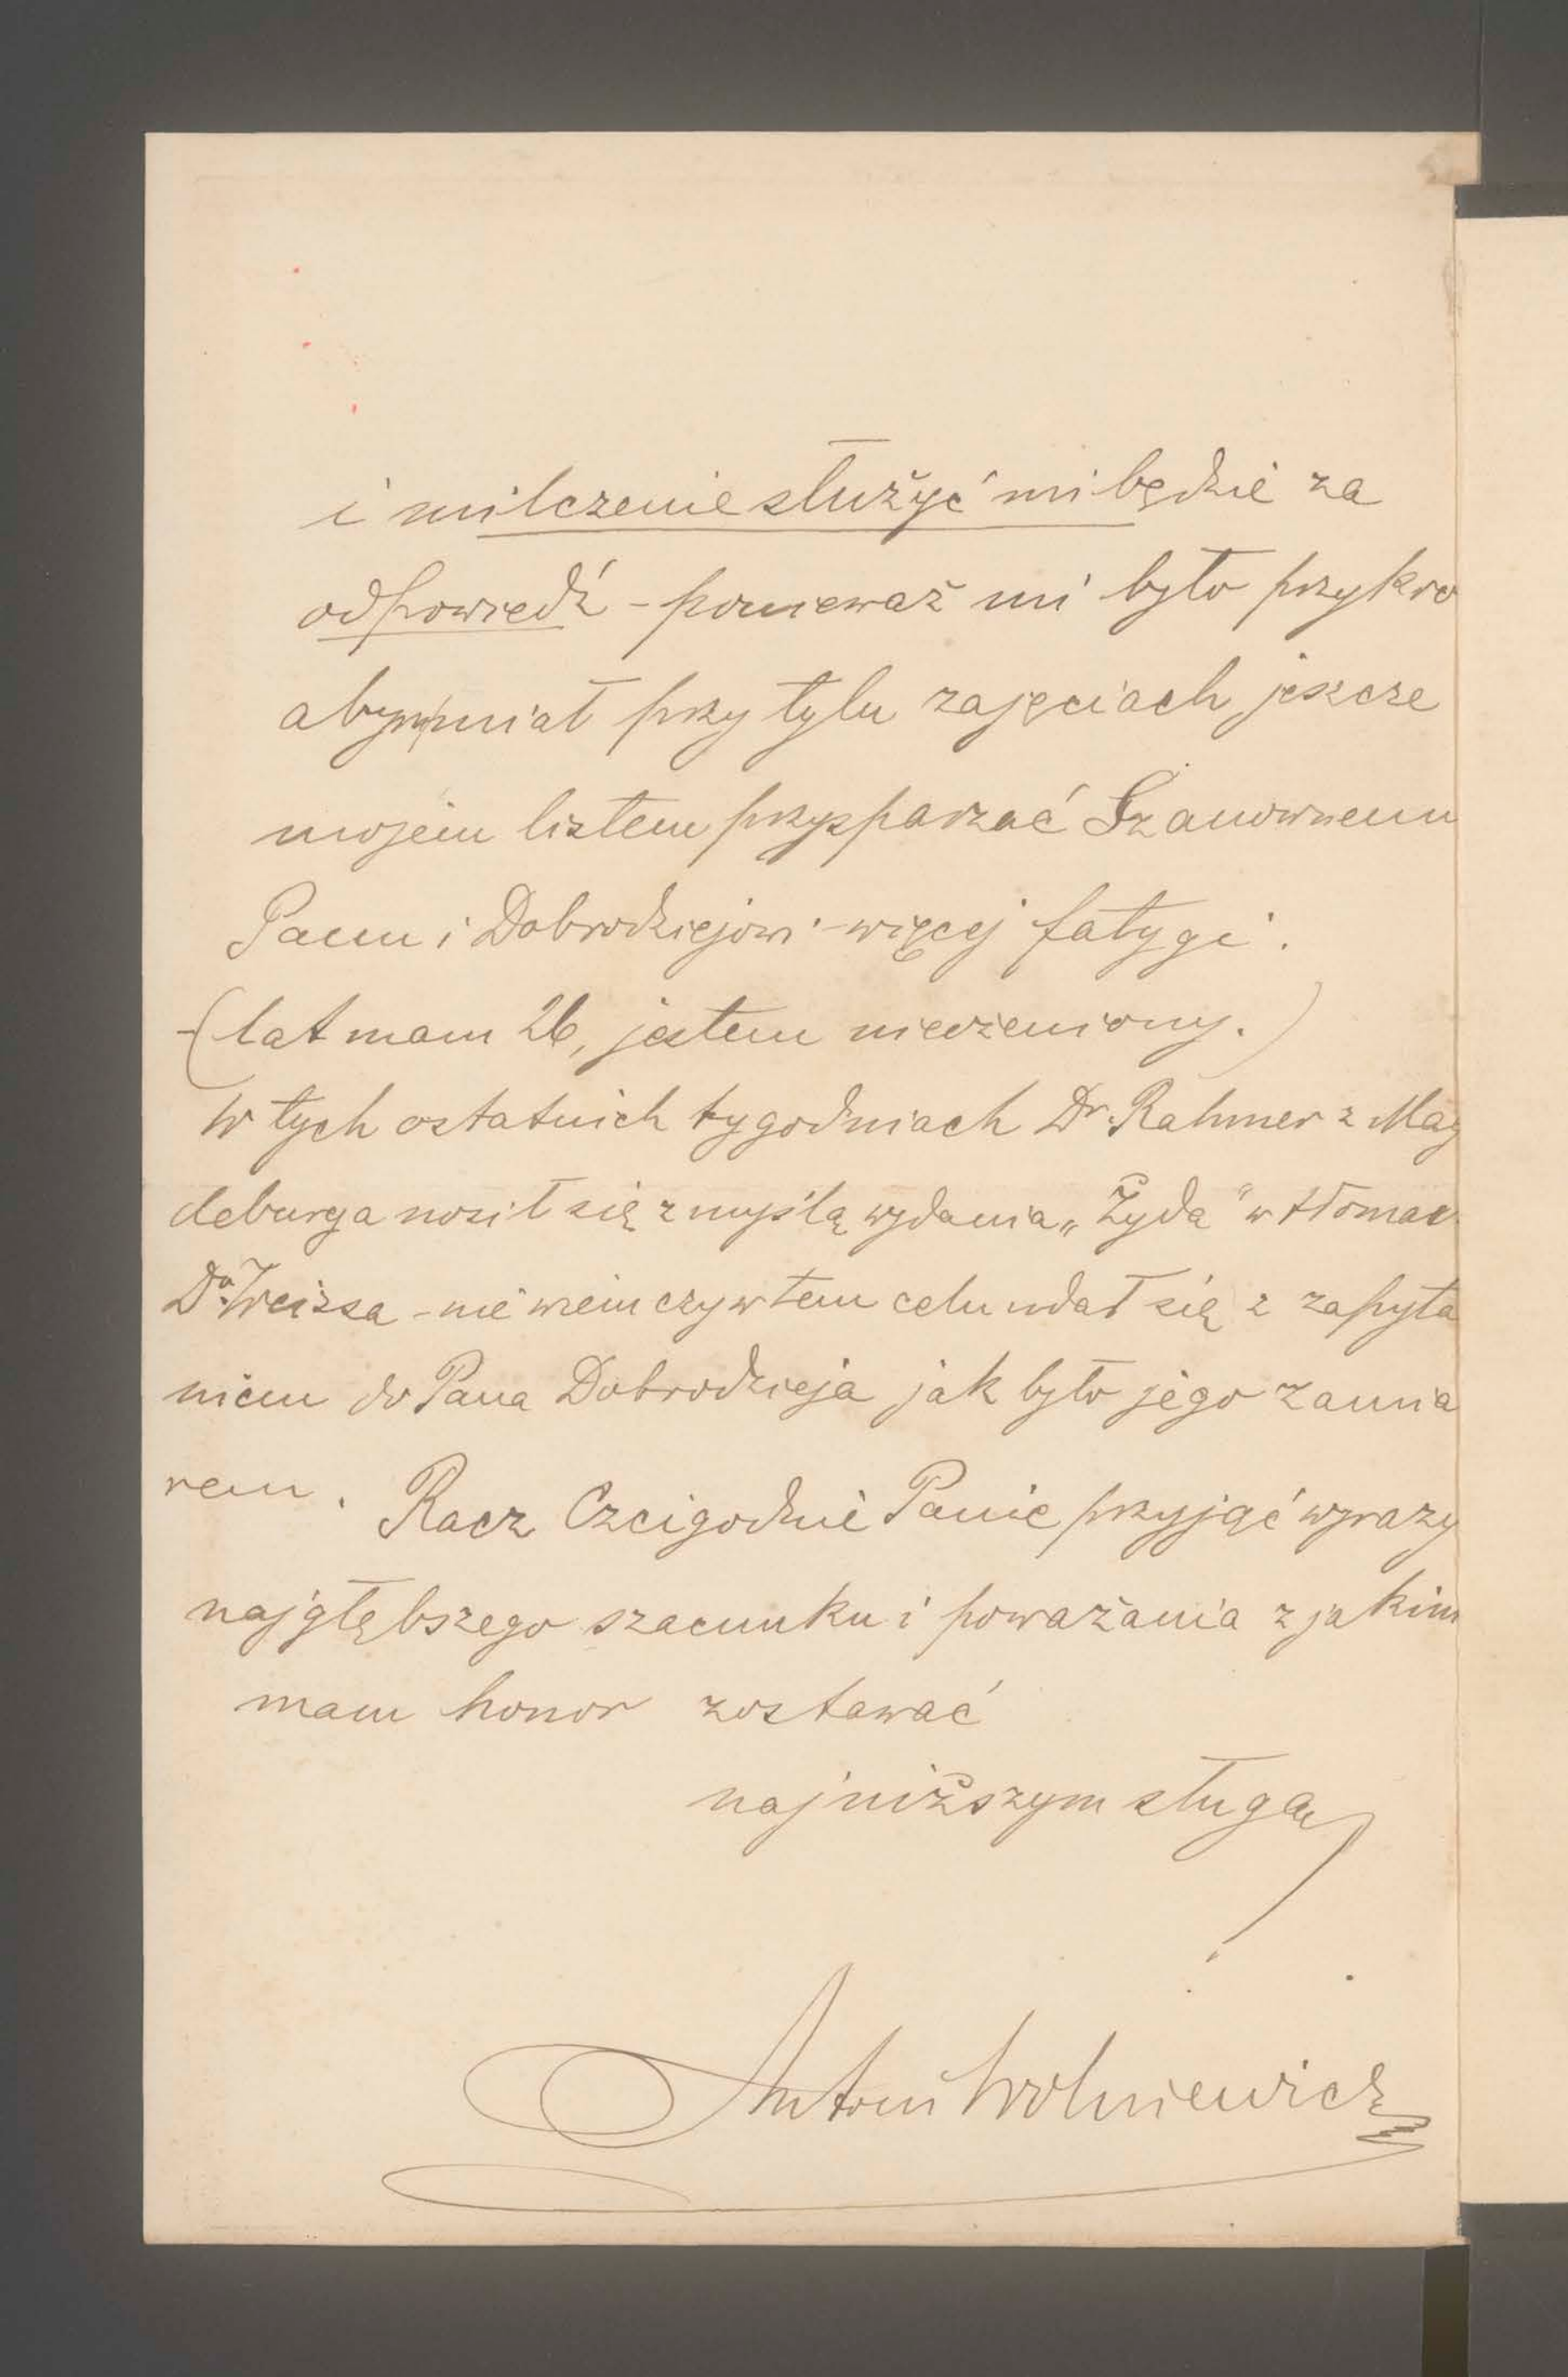 i milczenie służyć mi będzie za
odpowiedź - ponieważ mi było przykro
abym miał przy tylu zajęciach jeszcze
mojem listem przysparzać Szanownemu
Panu i Dobrodziejowi - więcej fatygi.
- (lat mam 26, jestem nieożeniony.)
W tych ostatnich tygodniach Dr. Rahmer z Mag
deburga nosił się z myślą wydania „Żyda" w tłomacz
Dra Weissa - nie wiem czy w tem celu udał się z zapyta
niem do Pana Dobrodzieja jak było jego zamia
rem. Racz Czcigodnie Panie przyjąć wyrazy
najgłębszego szacunku i poważania z jakim
mam honor zostawać
najniższym sługą
Antoni Wolniewicz